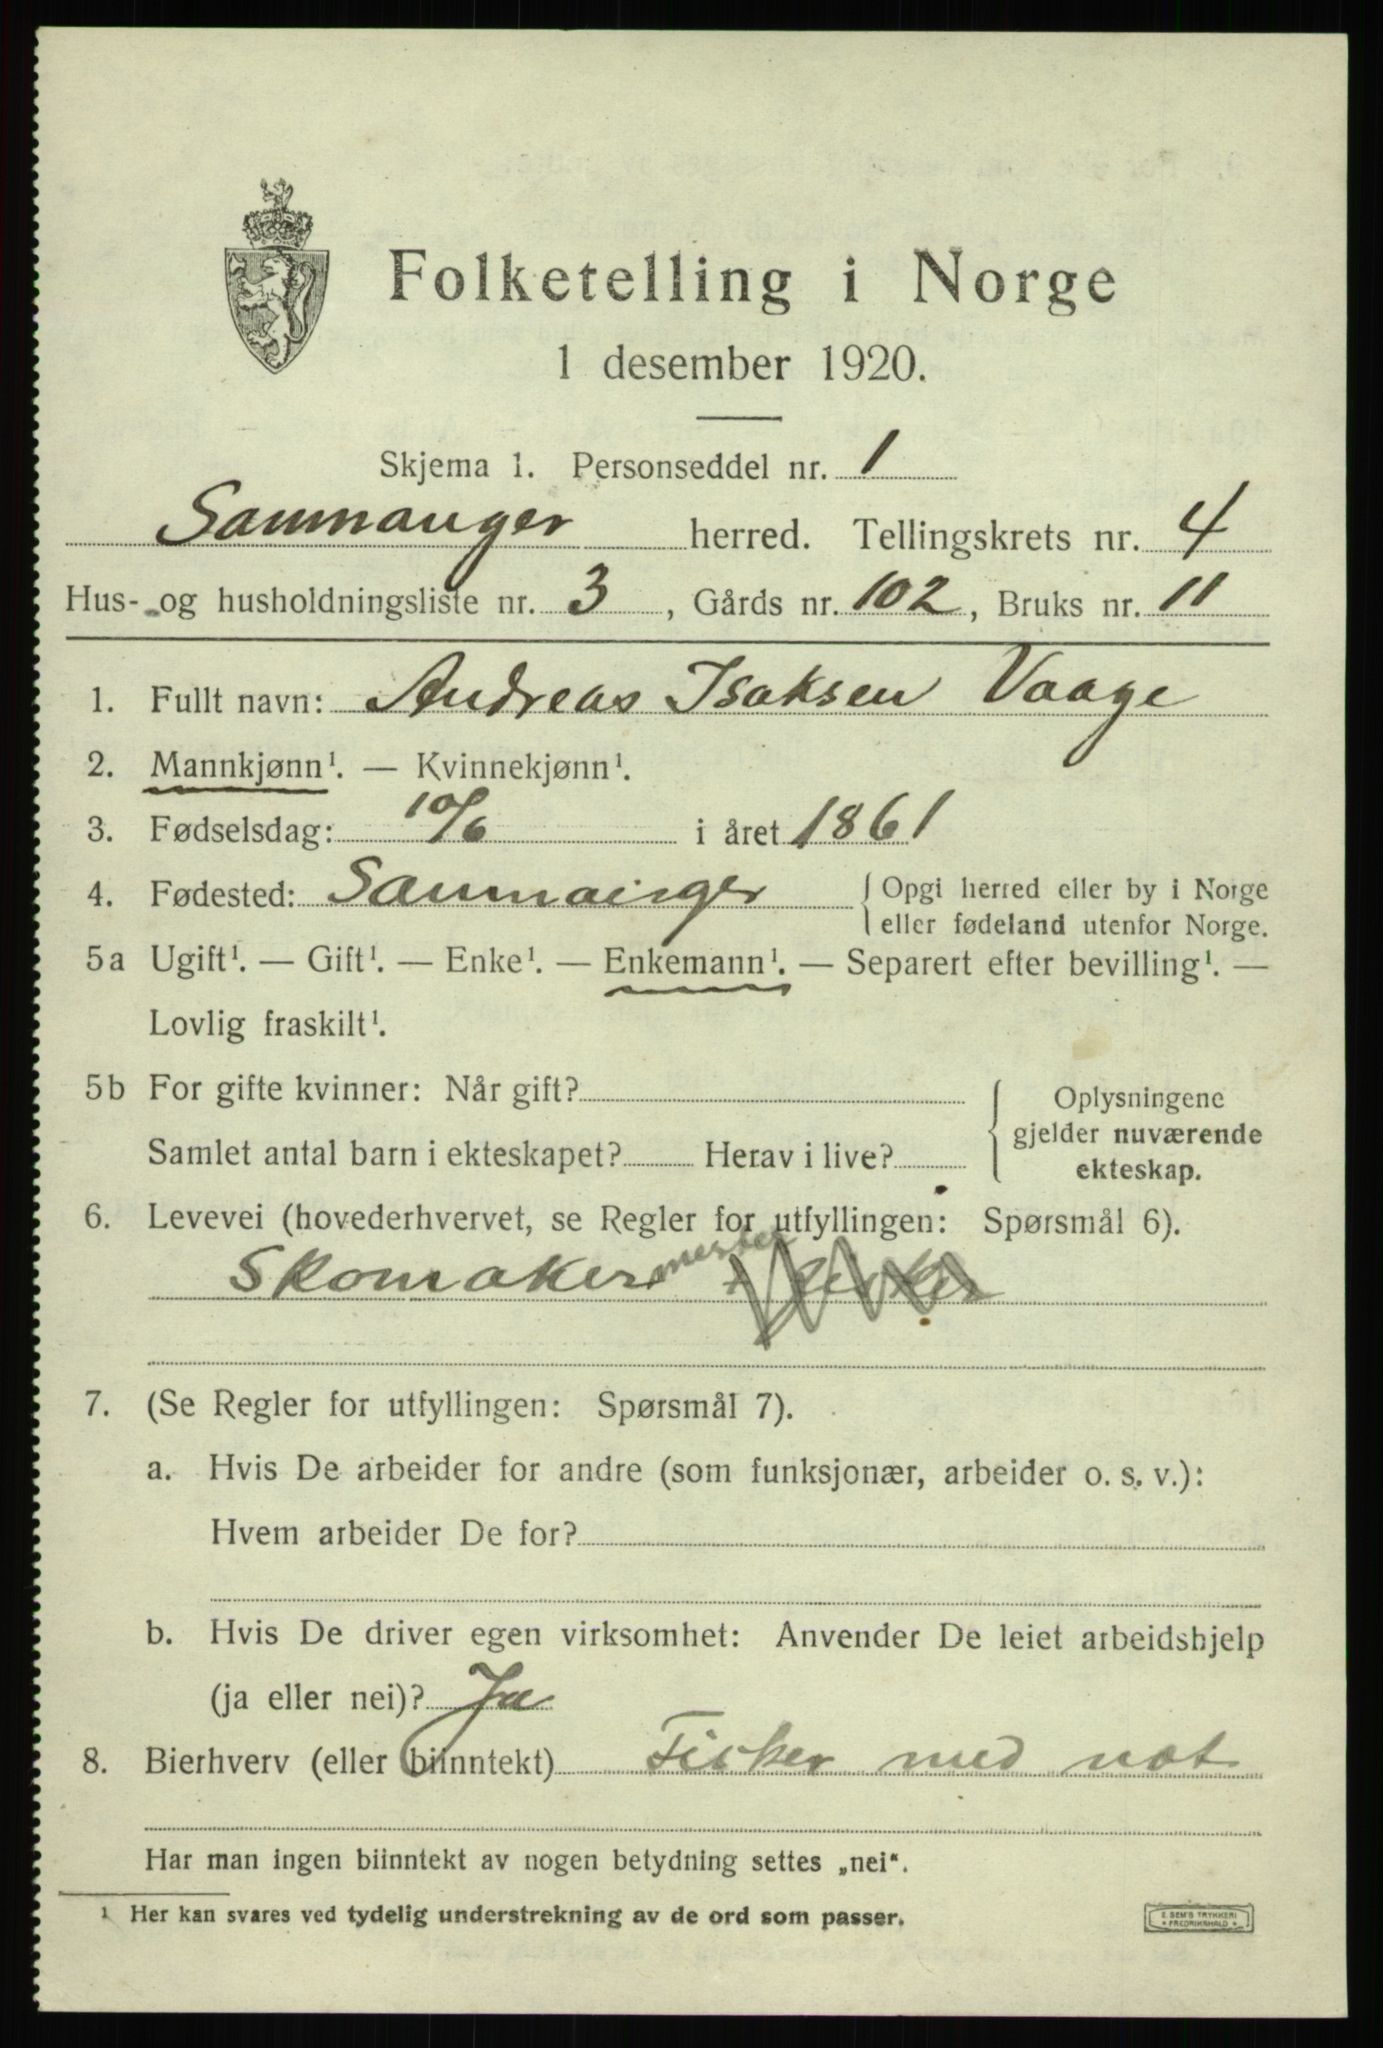 Folketelling i Norge
1 desember 1920.
Skjema 1. Personseddel nr. 1
Saumanger herred. Tellingskrets nr. 4
Hus- og husholdningsliste nr. 3, Gårds nr. 102, Bruks nr. 11
1. Fullt navn: Andreas Isaksen Vaage
2. Mannkjønn¹. — Kvinnekjønn¹.
3. Fødselsdag: 10/6 i året 1861
4. Fødested: Saumanger {Opgi herred eller by i Norge
eller fødeland utenfor Norge.
5a Ugift¹. — Gift¹. — Enke¹. — Enkemann¹. — Separert efter bevilling¹. —
Lovlig fraskilt¹.
5b For gifte kvinner: Når gift?
Samlet antal barn i ekteskapet? Herav i live?
Oplysningene
gjelder nuværende
ekteskap.
6. Levevei (hovederhvervet, se Regler for utfyllingen: Spørsmål 6).
Skomakermester + fisker
7. (Se Regler for utfyllingen: Spørsmål 7).
a. Hvis De arbeider for andre (som funksjonær, arbeider o. s. v.):
Hvem arbeider De for?
b. Hvis De driver egen virksomhet: Anvender De leiet arbeidshjelp
(ja eller nei)? Ja
8. Bierhverv (eller biinntekt) Fisker med not
Har man ingen biinntekt av nogen betydning settes „nei“.
¹ Her kan svares ved tydelig understrekning av de ord som passer.
E. SEM'S TRYKKERI
* FREDRIKSHALD *